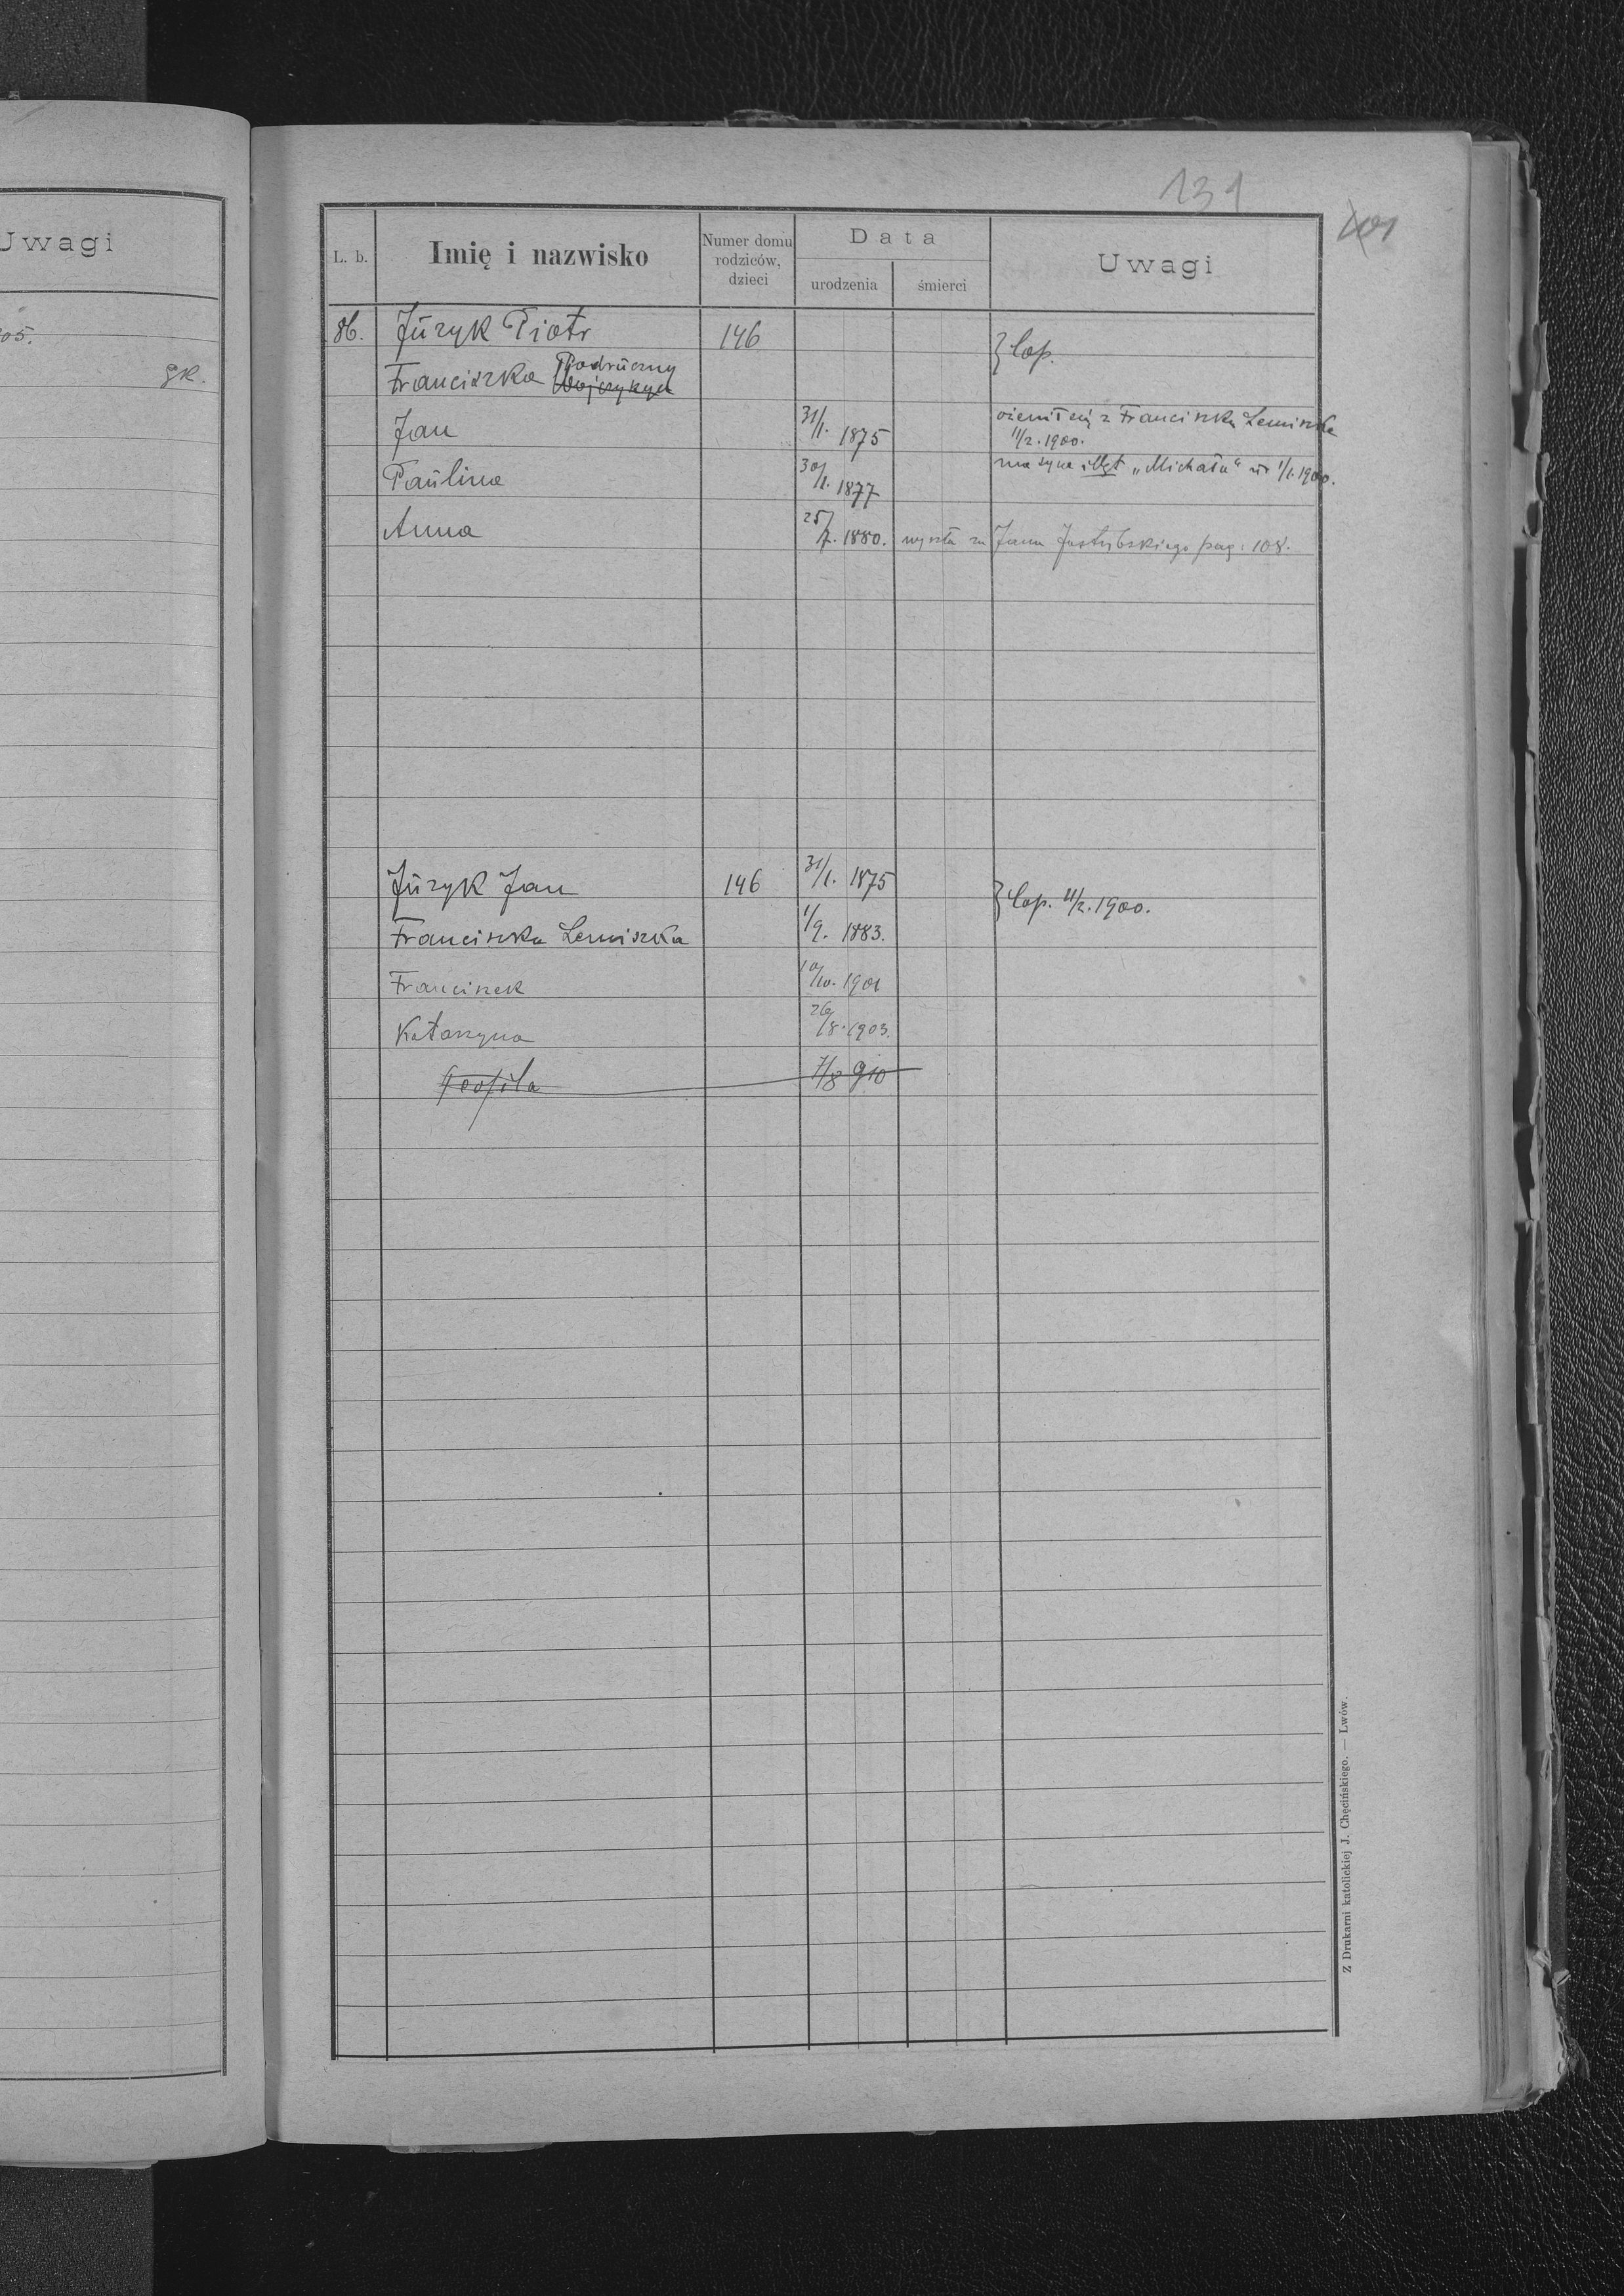 Uwagi
05.
gk.
131
101
L. b.
Imię i nazwisko
Numer domu rodziców, dzieci
Data
urodzenia
śmierci
Uwagi
86. Jūzyk Piotr 146 } Cop.
Podrūczny
Franciszka Wojczykych
Jan 31/1. 1875 ożenił się z Franciszką Lemiszka
11/2. 1900.
Paūlina 30/1. 1877 ma syna illgt „Michała" ūr 1/1. 1900.
Anna 25/7. 1880. wyszła za Jana Jastrzbskiego pag: 108.
Jūzyk Jan 146 31/1. 1875 } Cop. 11/2. 1900.
Franciszka Lemiszka 1/9. 1883.
Franciszek 10/10. 1901
Katarzyna 26/8. 1903.
Teofila 7/8 910
Z Drukarni katolickiej J. Chęcińskiego. — Lwów.